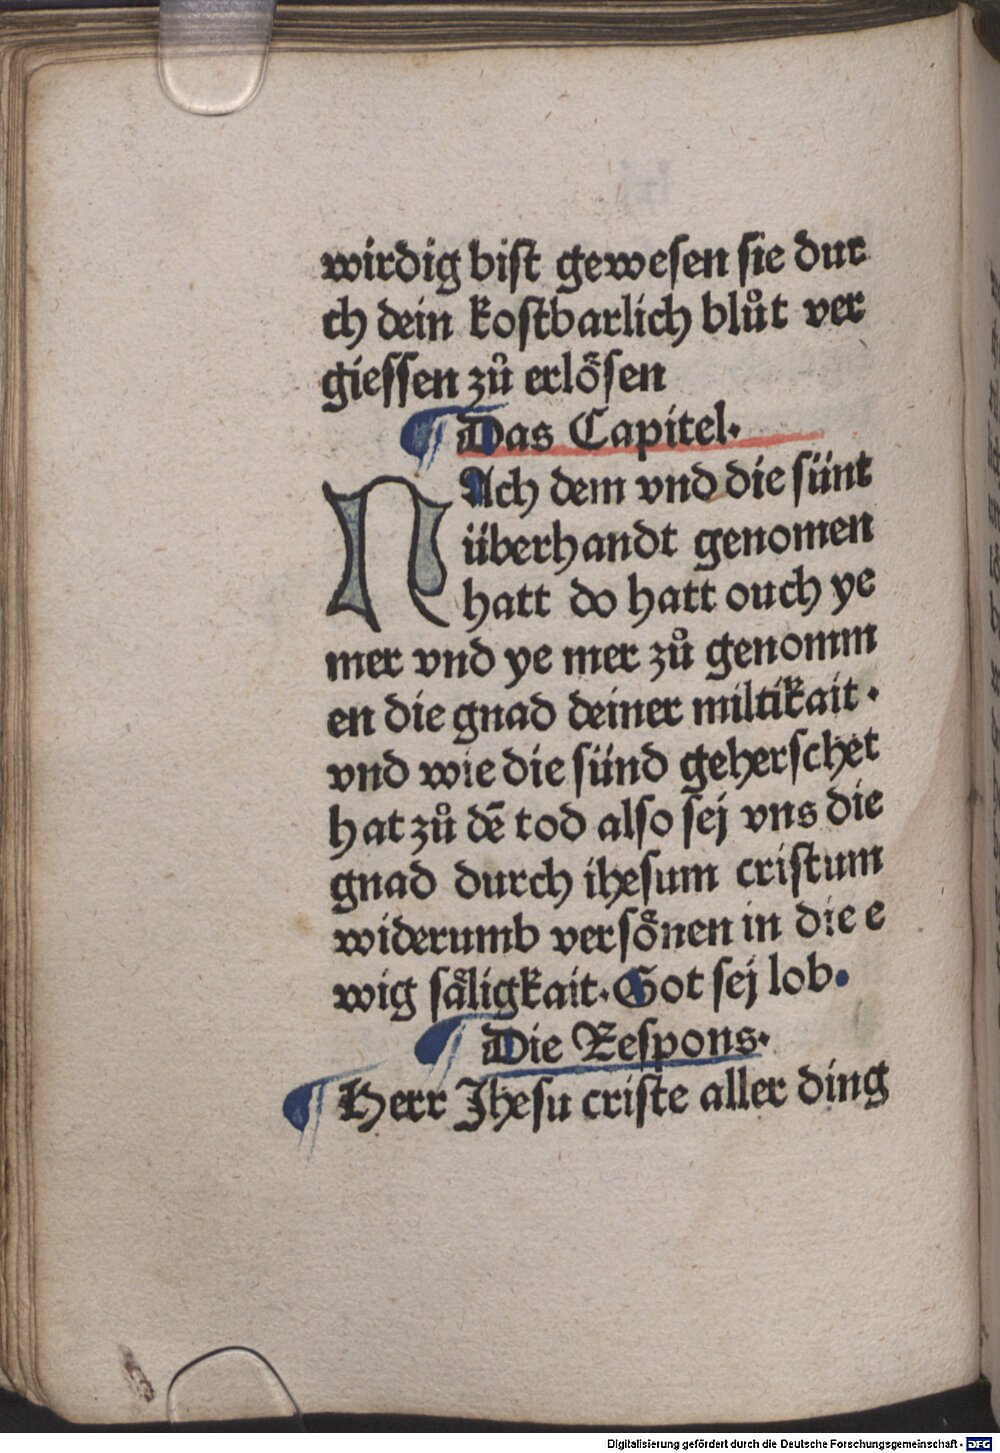 wirdig bist gewesen sie dur
ch dein kostbarlich blůt ver
giessen zů erlösen
¶ Das Capitel.
NAch dem vnd die sünt
überhandt genomen
hatt do hatt ouch ye
mer vnd ye mer zů genomm
en die gnad deiner miltikait .
vnd wie die sünd geherschet
hat zů dē tod also sej vns die
gnad durch ihesum cristum
widerumb versönen in die e
wig säligkait. Got sej lob.
¶ Die Respons.
¶ Herr Jhesu criste aller ding
Digitalisierung gefördert durch die Deutsche Forschungsgemeinschaft - DFG